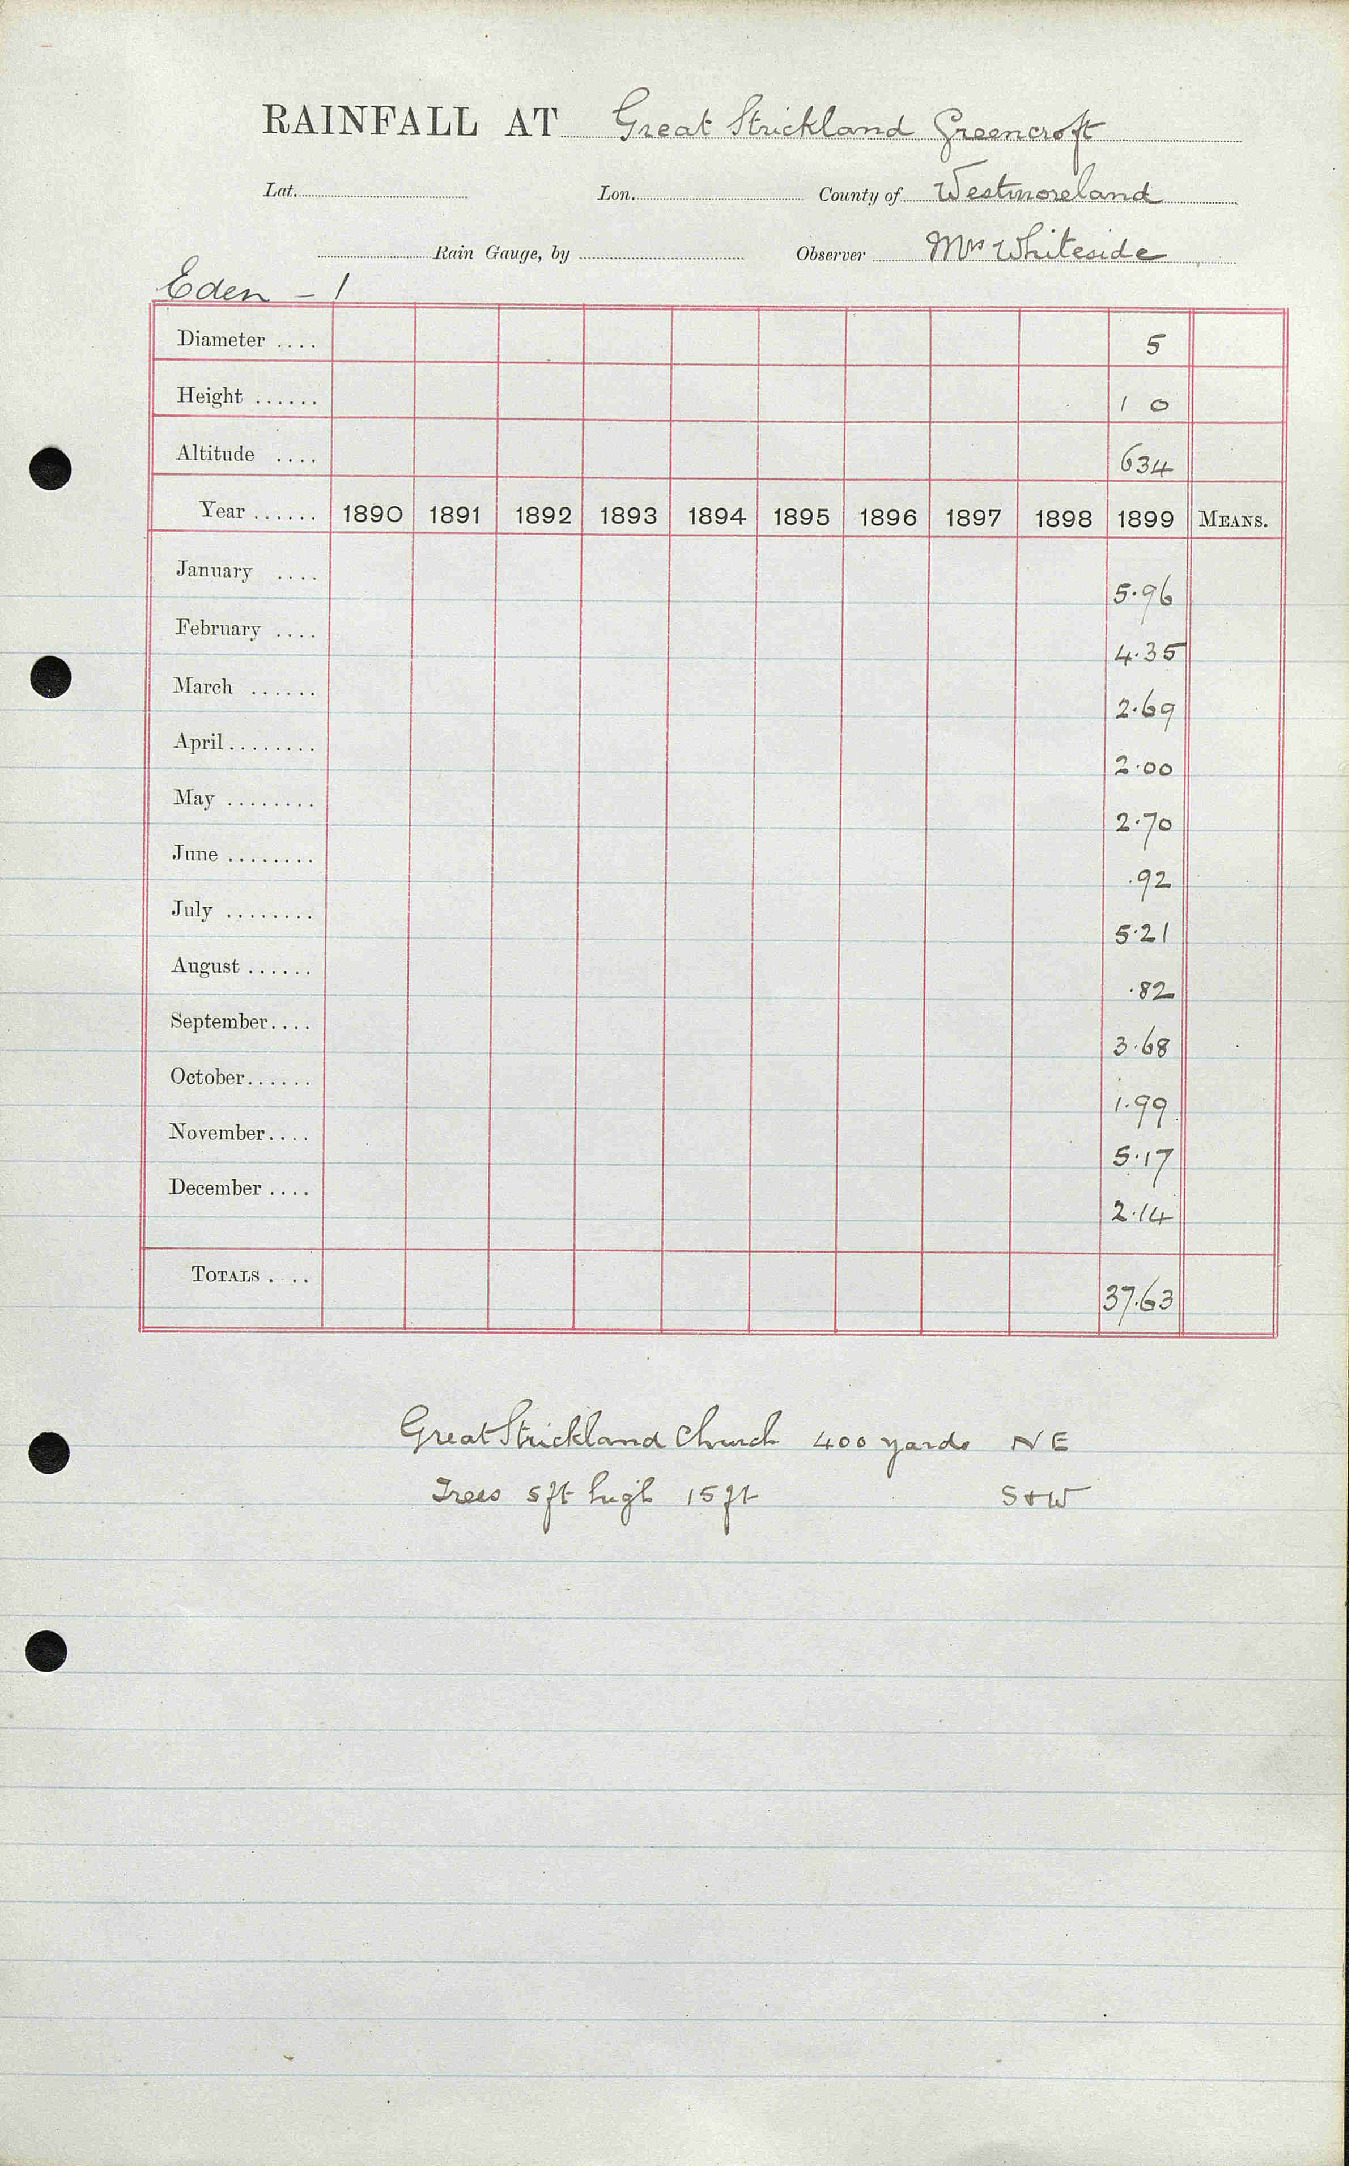 RAINFALL AT Great Strickland Greencroft
Lat. Lon. County of Westmoreland
Rain Gauge, by Observer Mrs Whiteside
Eden - 1
Diameter .... 5
Height ...... 1 0
Altitude .... 634
Year ...... 1890 1891 1892 1893 1894 1895 1896 1897 1898 1899 MEANS.
January .... 5.96
February .... 4.35
March ...... 2.69
April ........ 2.00
May ........ 2.70
June ........ .92
July ........ 5.21
August ...... .82
September.... 3.68
October...... 1.99
November.... 5.17
December .... 2.14
TOTALS . .. 37.63
Great Strickland Church 400 yards NE
Trees 5ft high 15ft S+W